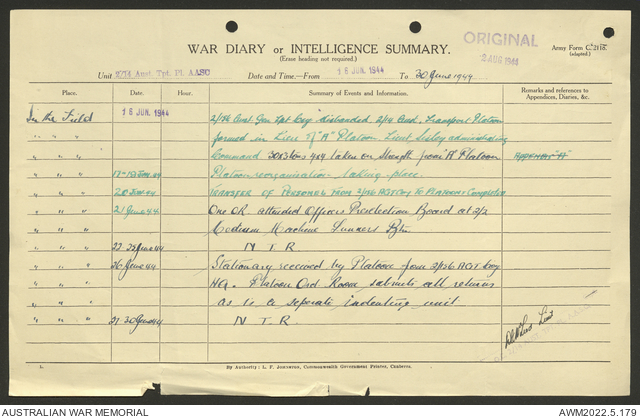 ORIGINAL
2 AUG 1944
WAR DIARY or INTELLIGENCE SUMMARY.
(Erase heading not required.)
Army Form C. 2118.
(adapted.)
Unit Aust. Tpt. Pl. AASC
Date and Time—From 16 JUN 1944 To 30 June 1944
Place. Date. Hour. Summary of Events and Information. Remarks and references to Appendices, Diaries, &c.
In the Field 16 JUN. 1944 2/156 Aust Gen Tpt Coy disbanded 2/14 Aust. Transport Platoon
" " " formed in Lieu of "A" Platoon Lieut administrating
" " " Command 30 x 3 tons 4x4 taken on Strength from "A" Platoon APPENDIX "A"
" " " 17-19 Platoon reorganisation taking place.
" " " 20 TRANSFER OF PERSONEL FROM 2/156 AGT COY TO PLATOONS Completed
" " " 21 June 44 One OR attended Officers Preselection Board at 2/2
" " " Medium Machine Gunners Btn.
" " " 22-25 June 44 N T R
" " " 26 June 44 Stationary received by Platoon from 2/156 AGT Coy
" " " HQ. Platoon Ord Room submits all returns
" " " as is a seperate indenting unit
" " " 27-30 June 44 N. T. R.
Lieut
1. By Authority: L. F. Johnston, Commonwealth Government Printer, Canberra.
AUSTRALIAN WAR MEMORIAL AWM2022.5.179